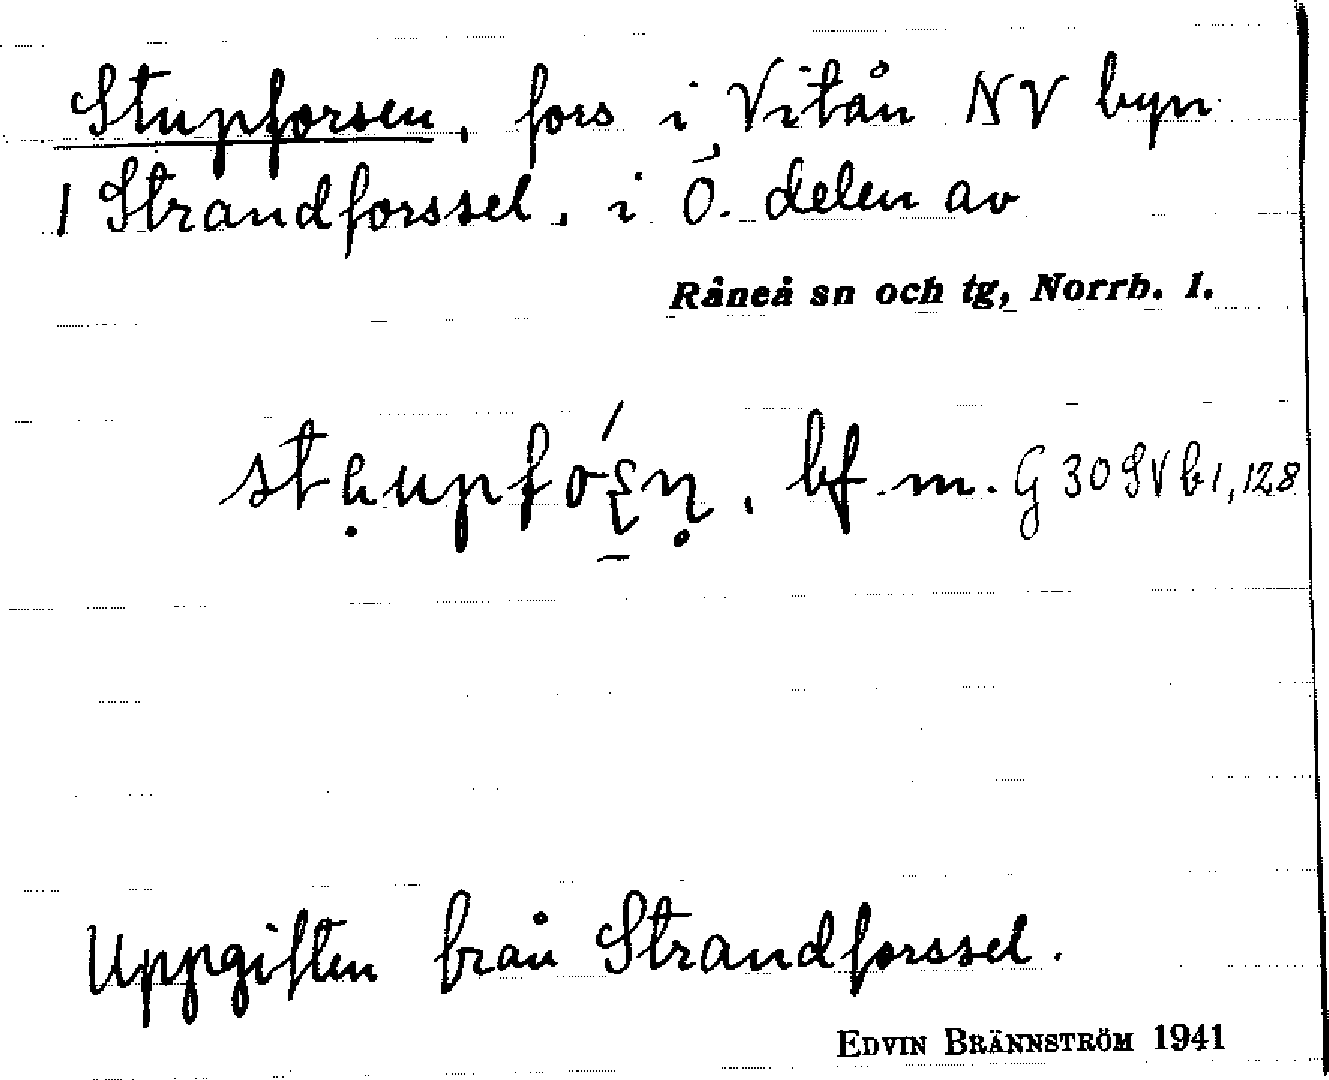 Stupforsen, fors i Vitån NV byn
1 Strandforssel, i Ö. delen av
Råneå sn och tg, Norrb. l.
bf. m. G 30 SV b 1, 128
Uppgiften från Strandforssel.
EDVIN BRÄNNSTRÖM 1941